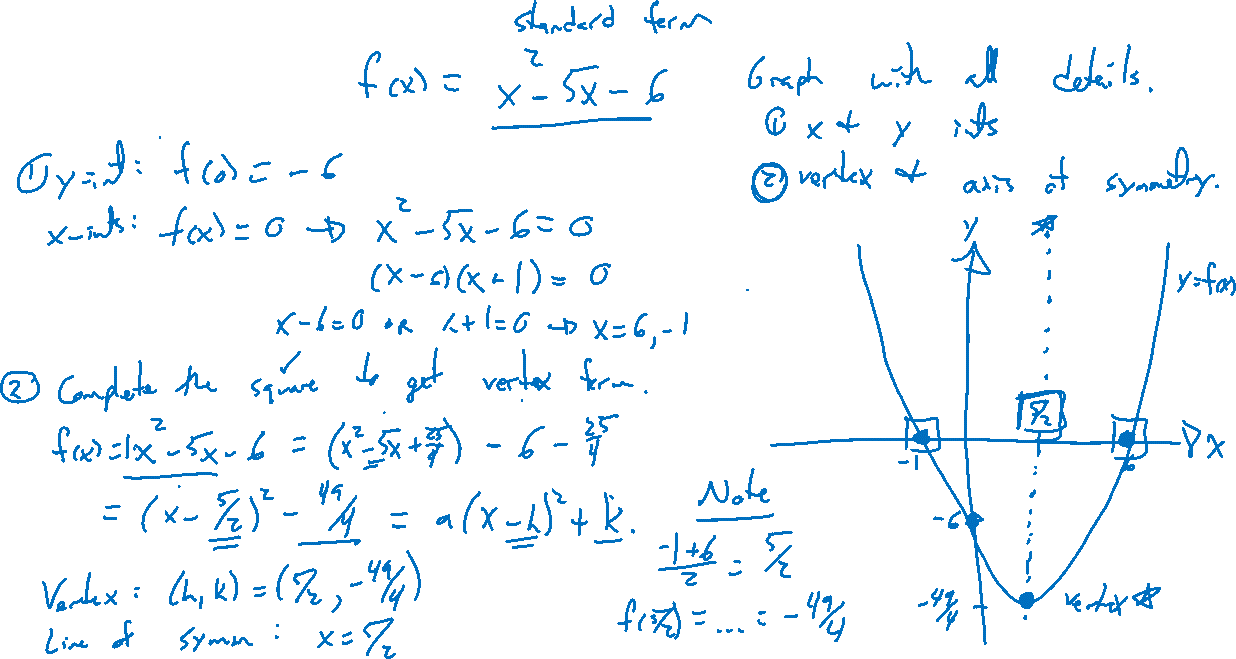 standard form
f(x) = x² - 5x - 6
Graph with all details.
① x & y ints
② vertex & axis of symmetry.
① y-int: f(0) = -6
x-ints: f(x) = 0 → x² - 5x - 6 = 0
(x - 6)(x + 1) = 0
x - 6 = 0 OR x + 1 = 0 → x = 6, -1
② Complete the square to get vertex form.
f(x) = 1x² - 5x - 6 = (x² - 5x + 25/4) - 6 - 25/4
= (x - 5/2)² - 49/4 = a(x - h)² + k.
Vertex: (h, k) = (5/2, -49/4)
Line of symm: x = 5/2
Note
(-1 + 6)/2 = 5/2
f(5/2) = ... = -49/4
y
y = f(x)
5/2
-1
6
x
-6
-49/4
vertex